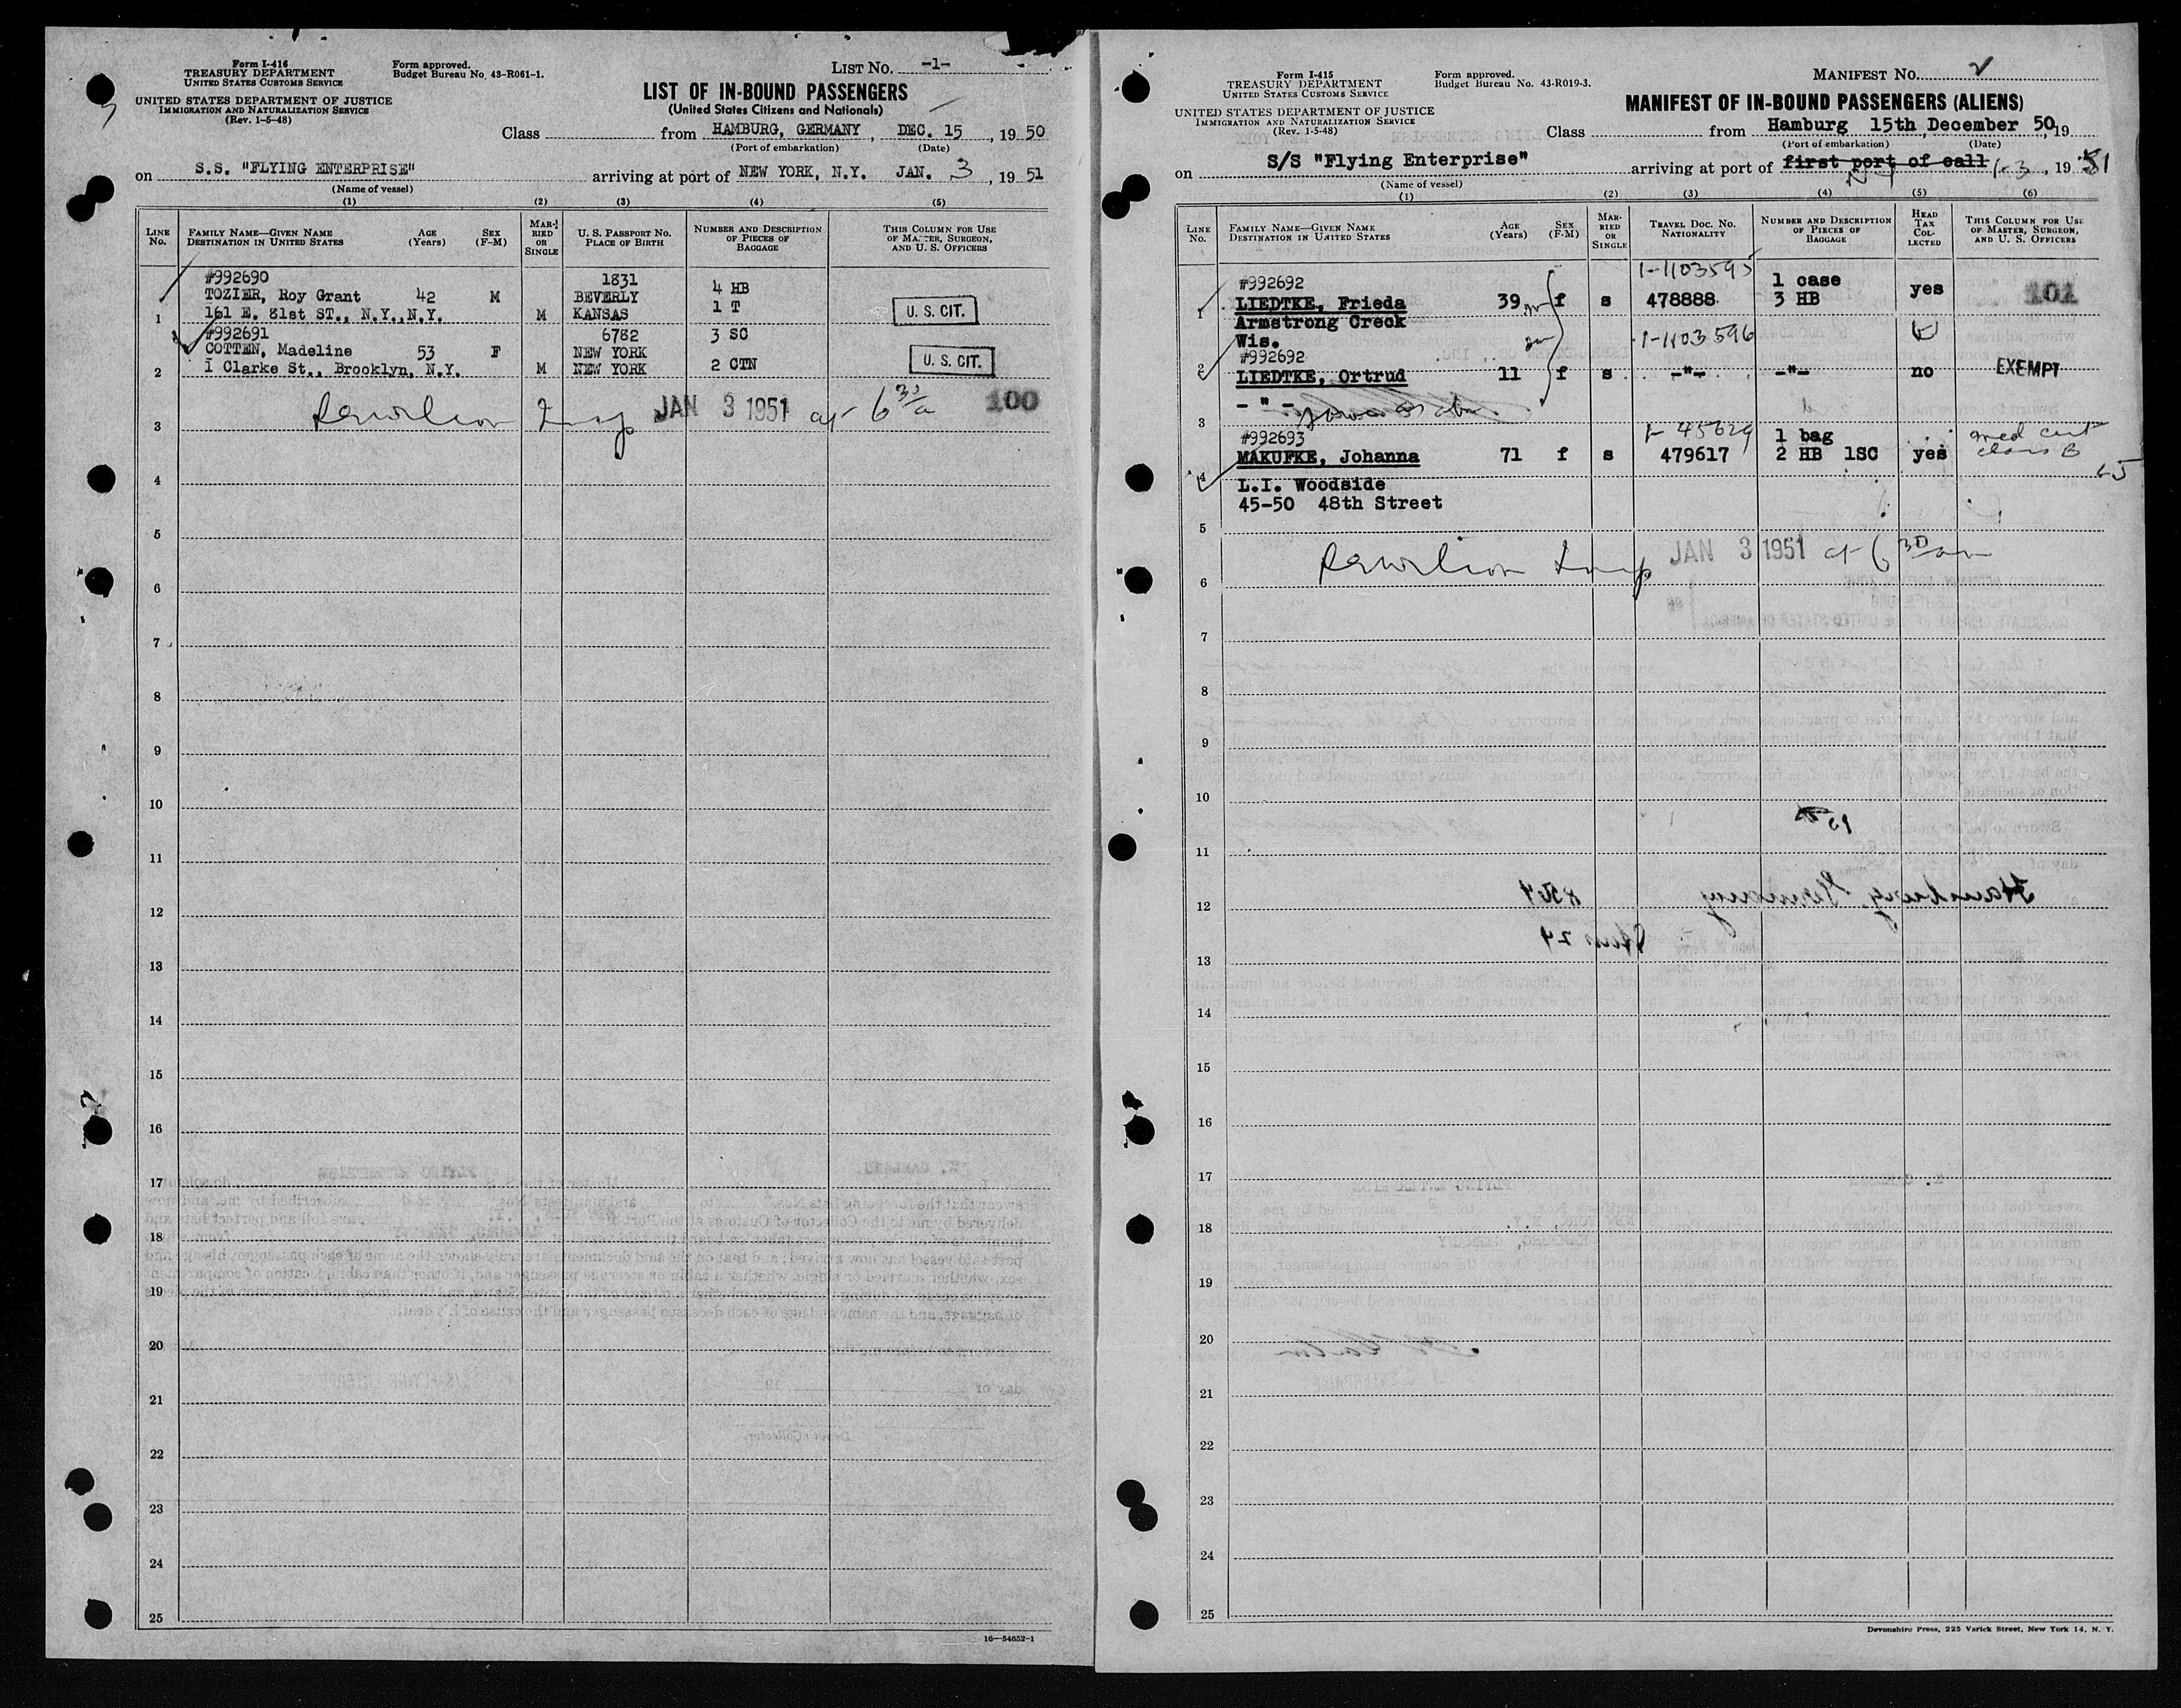 Form I-416
TREASURY DEPARTMENT
UNITED STATES CUSTOMS SERVICE
UNITED STATES DEPARTMENT OF JUSTICE
IMMIGRATION AND NATURALIZATION SERVICE
(Rev. 1-5-48)
Form approved.
Budget Bureau No. 43-R061-1.
LIST NO. -1-
LIST OF IN-BOUND PASSENGERS
(United States Citizens and Nationals)
Class from HAMBURG, GERMANY, DEC. 15, 1950
(Port of embarkation) (Date)
on S.S. "FLYING ENTERPRISE" arriving at port of NEW YORK, N.Y. JAN. 3, 1951
(Name of vessel)
(1) (2) (3) (4) (5)
LINE No. FAMILY NAME—GIVEN NAME DESTINATION IN UNITED STATES AGE (Years) SEX (F-M) MARRIED OR SINGLE U. S. PASSPORT NO. PLACE OF BIRTH NUMBER AND DESCRIPTION OF PIECES OF BAGGAGE THIS COLUMN FOR USE OF MASTER, SURGEON, AND U. S. OFFICERS
#992690 1831 4 HB
TOZIER, Roy Grant 42 M BEVERLY 1 T
1 161 E. 81st ST., N.Y.,N.Y. M KANSAS U. S. CIT.
#992691 6782 3 SC
COTTEN, Madeline 53 F NEW YORK
2 1 Clarke St., Brooklyn, N.Y. M NEW YORK 2 CTN U. S. CIT.
3 Insp JAN 3 1951 at 6 30 a 100
4
5
6
7
8
9
10
11
12
13
14
15
16
17
18
19
20
21
22
23
24
25
16—54652-1
Form I-415
TREASURY DEPARTMENT
UNITED STATES CUSTOMS SERVICE
UNITED STATES DEPARTMENT OF JUSTICE
IMMIGRATION AND NATURALIZATION SERVICE
(Rev. 1-5-48)
Form approved.
Budget Bureau No. 43-R019-3.
MANIFEST NO. 2
MANIFEST OF IN-BOUND PASSENGERS (ALIENS)
Class from Hamburg 15th December 50, 19
(Port of embarkation) (Date)
on S/S "Flying Enterprise" arriving at port of first port of call NY 1-3, 1951
(Name of vessel)
(1) (2) (3) (4) (5) (6)
LINE No. FAMILY NAME—GIVEN NAME DESTINATION IN UNITED STATES AGE (Years) SEX (F-M) MARRIED OR SINGLE TRAVEL DOC. NO. NATIONALITY NUMBER AND DESCRIPTION OF PIECES OF BAGGAGE HEAD TAX COLLECTED THIS COLUMN FOR USE OF MASTER, SURGEON, AND U. S. OFFICERS
#992692 1-1103595 1 case
1 LIEDTKE, Frieda 39 f s 478888 3 HB yes 101
Armstrong Creek
Wis. 1-1103596
#992692
2 LIEDTKE, Ortrud 11 f s -"- -"- no EXEMPT
- " -
3
#992693 1- 45629 1 bag med cert
MAKUFKE, Johanna 71 f s 479617 2 HB 1SC yes class B
4 L.I. Woodside 65
45-50 48th Street
5
6 Insp JAN 3 1951 at 6 30 am
7
8
9
10
11
12 Hamburg, Germany
13
14
15
16
17
18
19
20
21
22
23
24
25
Devonshire Press, 225 Varick Street, New York 14, N. Y.